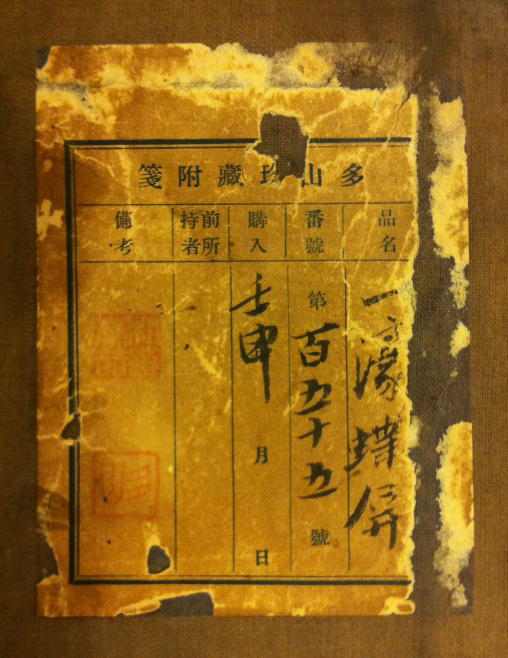 多山珍藏附箋
品名
一濠
番號
第百五十五號
購入
壬申 月 日
前所持者
備考